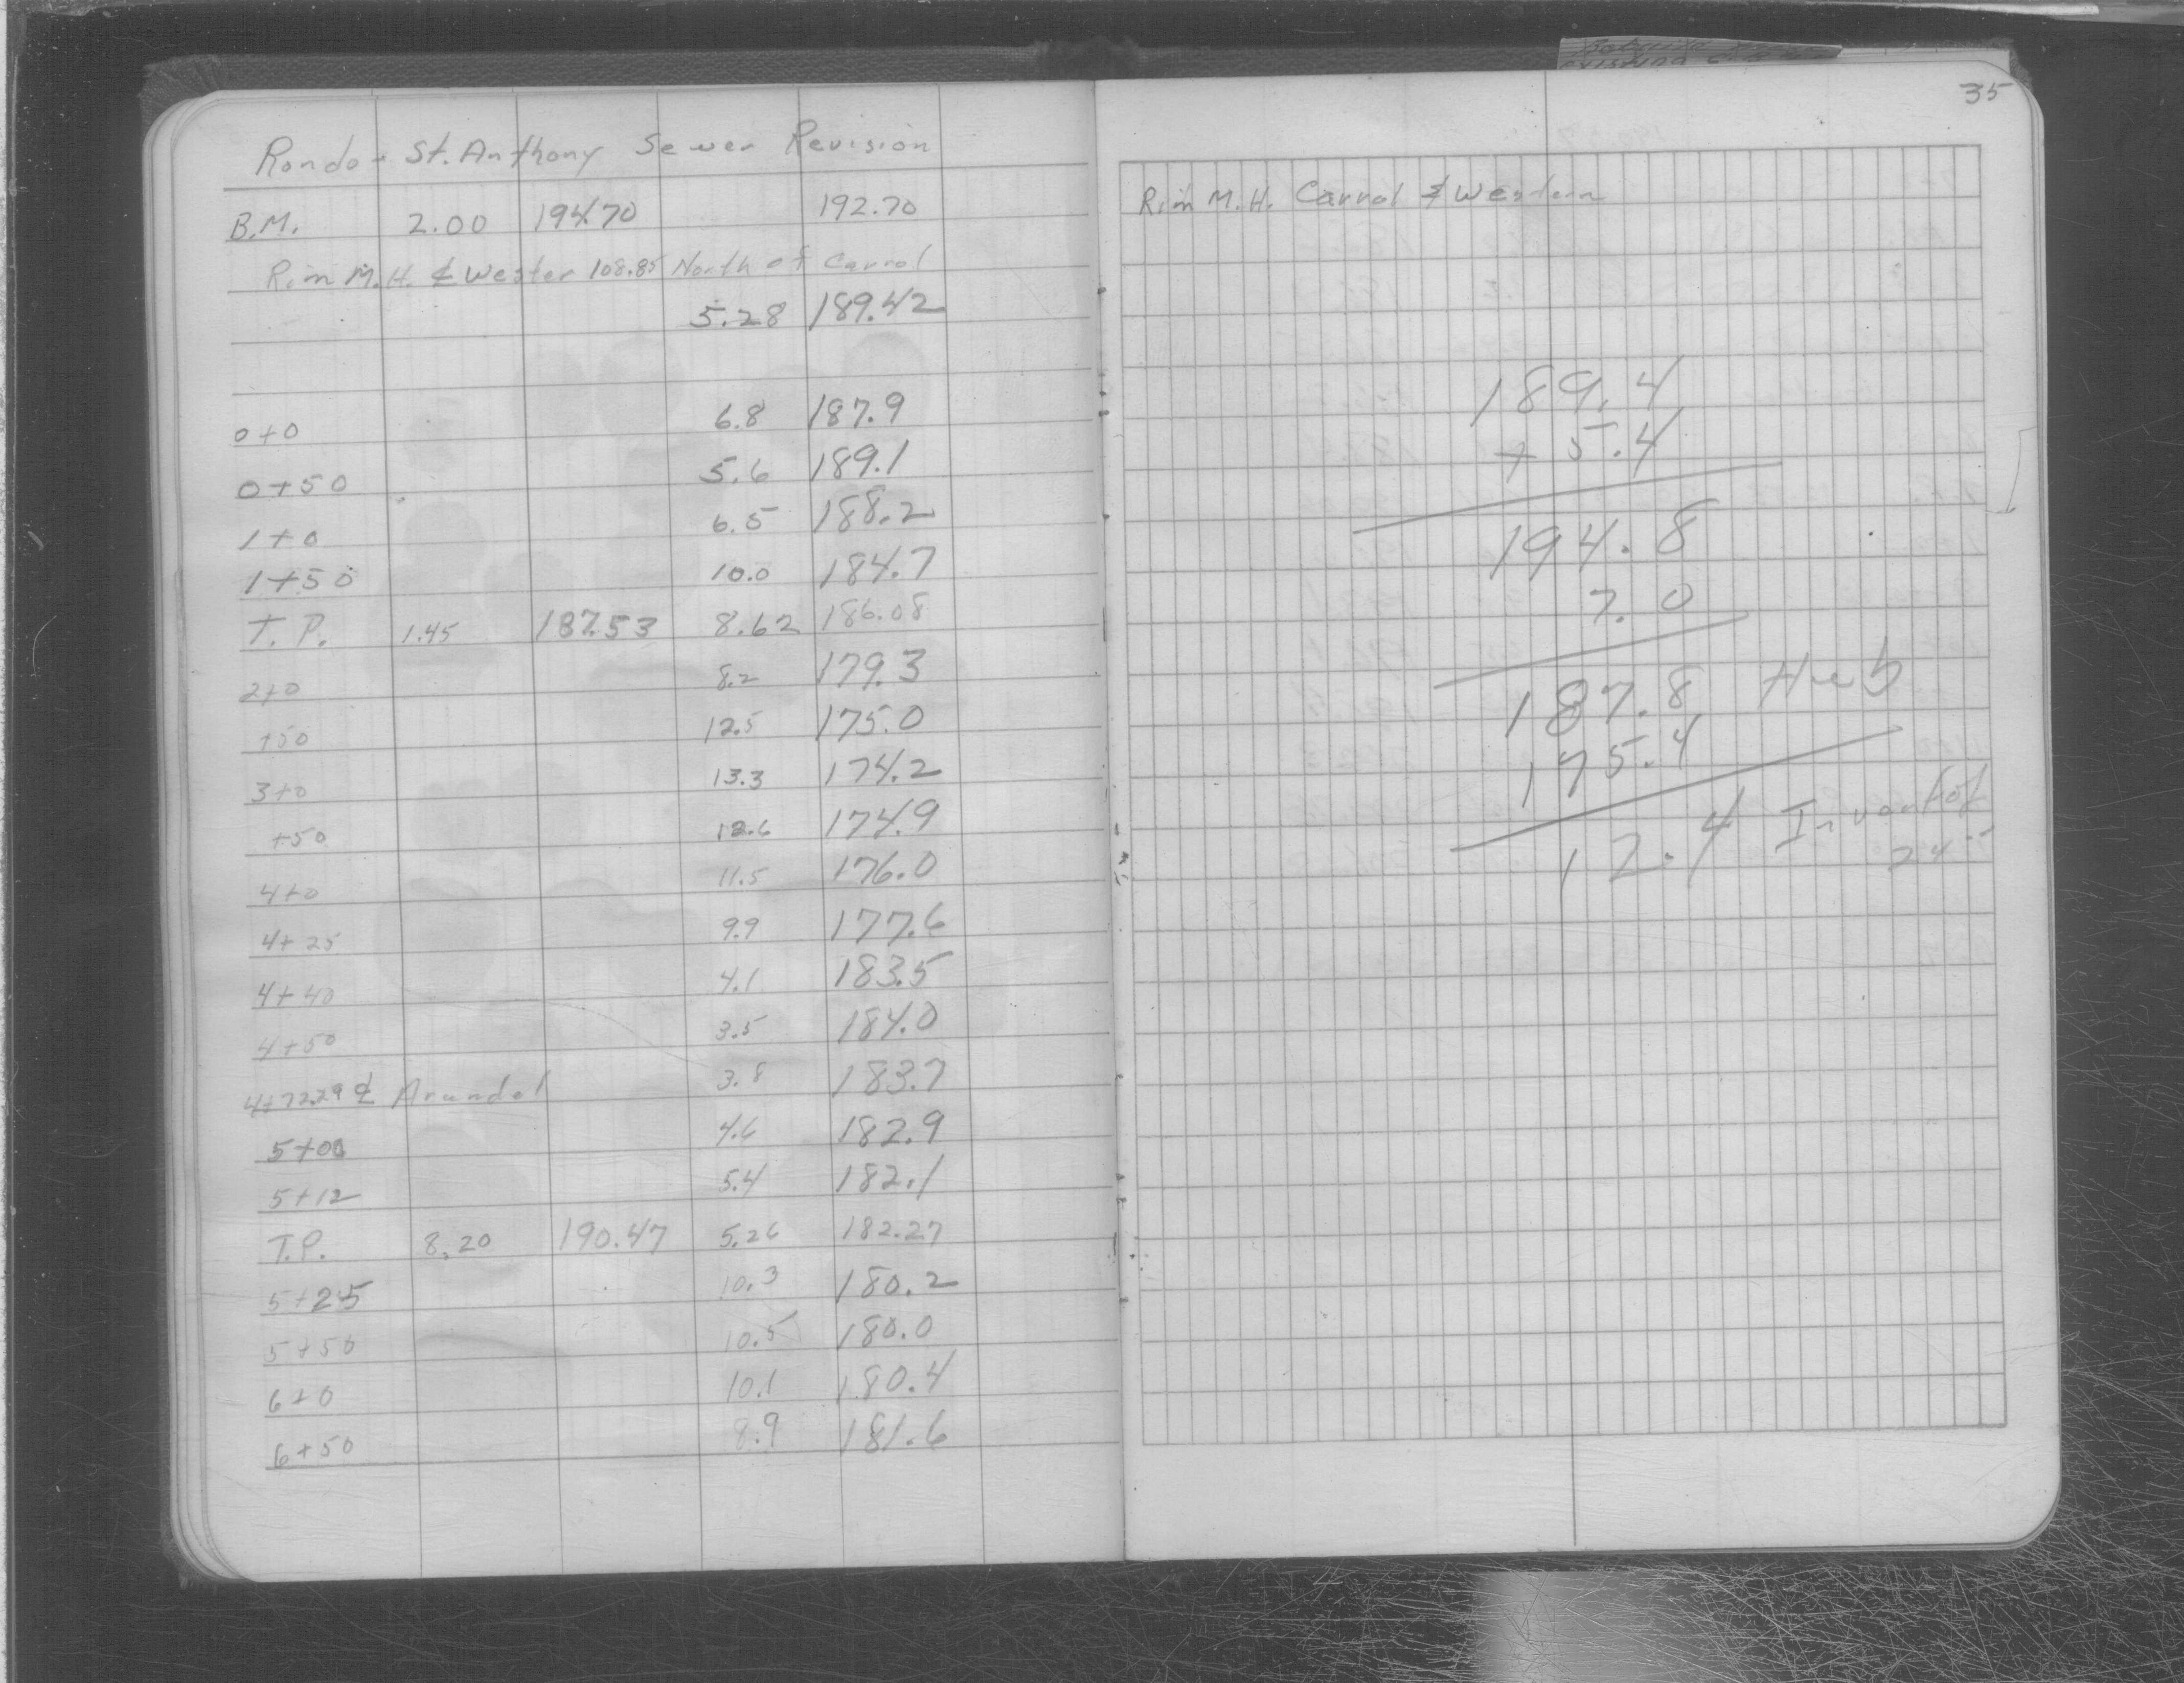 Rondo - St. Anthony Sewer Revision
B.M. 2.00 194.70 192.70
Rim M.H. ⅊ Wester 108.85 North of Carrol
5.28 189.42
0+0 6.8 187.9
0+50 5.6 189.1
1+0 6.5 188.2
1+50 10.0 184.7
T.P. 1.45 187.53 8.62 186.08
2+0 8.2 179.3
+50 12.5 175.0
3+0 13.3 174.2
+50 12.6 174.9
4+0 11.5 176.0
4+25 9.9 177.6
4+40 4.1 183.5
4+50 3.5 184.0
4+72.29 ⅊ Arundel 3.8 183.7
5+00 4.6 182.9
5+12 5.4 182.1
T.P. 8.20 190.47 5.26 182.27
5+25 10.3 180.2
5+50 10.5 180.0
6+0 10.1 180.4
6+50 8.9 181.6
existing
35
Rim M.H. Carrol ⅊ Western
189.4
+ 5.4
194.8
7.0
187.8 Hub
175.4
12.4 Invert of
24"